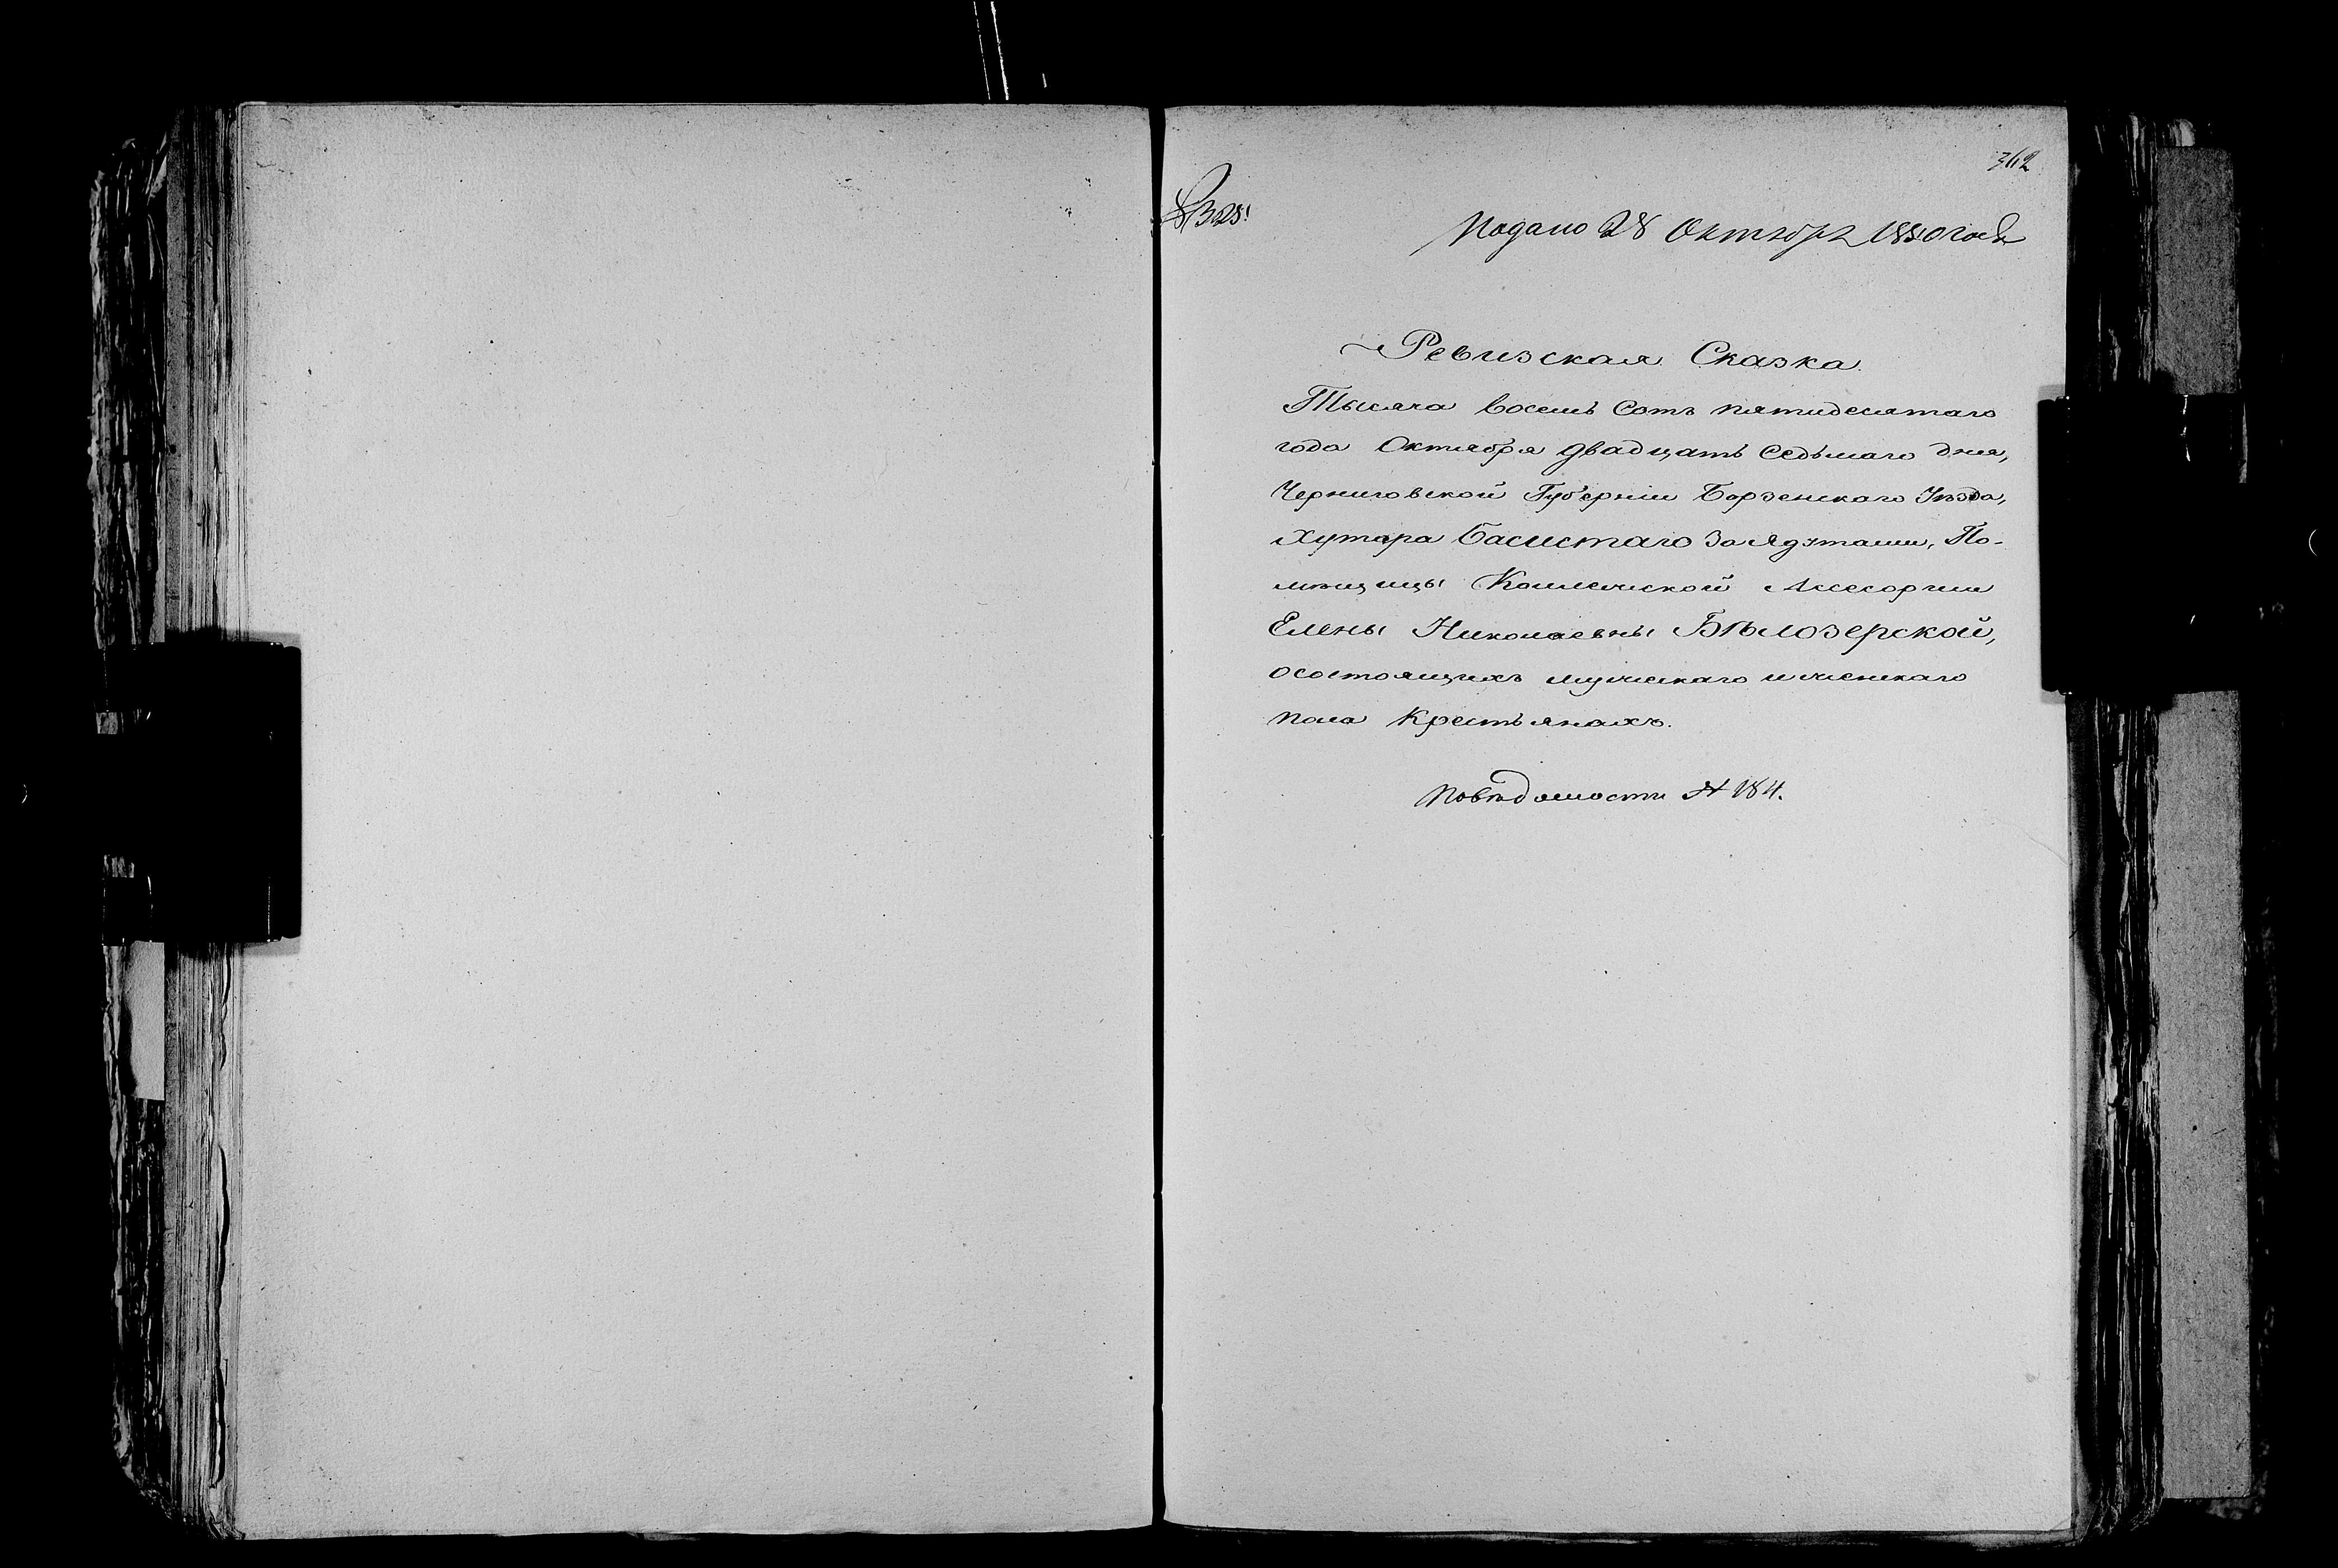 362
№ 325.
Подано 28 Октября 1850 года
Ревизская Сказка
Тысяча восемь сотъ пятидесятаго
года Октября двадцать седьмаго дня,
Черниговской Губерніи Борзенскаго Уѣзда,
Хутора Басистаго за
По-
мѣщицы Коллежской Ассесорши
Елены Николаевны Бѣлозерской,
о состоящихъ мужескаго и женскаго
пола Крестьянахъ.
По вѣдомости № 184.